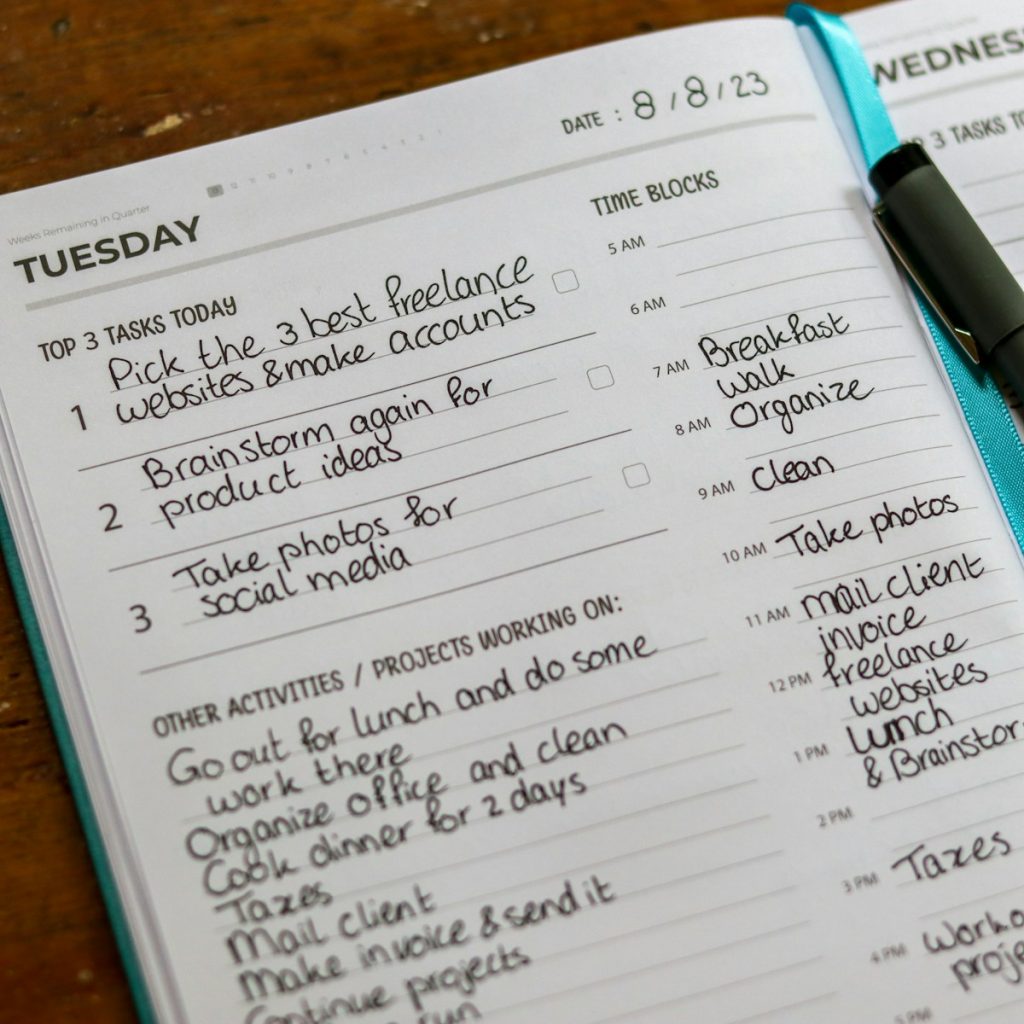 Weeks Remaining in Quarter
TUESDAY
DATE : 8/8/23
TOP 3 TASKS TODAY
1 Pick the 3 best freelance
websites & make accounts
2 Brainstorm again for
product ideas
3 Take photos for
social media
OTHER ACTIVITIES / PROJECTS WORKING ON:
Go out for lunch and do some
work there
Organize office and clean
Cook dinner for 2 days
Taxes
Mail client
Make invoice & send it
Continue projects
run
TIME BLOCKS
5 AM
6 AM
7 AM Breakfast
walk
8 AM Organize
9 AM clean
10 AM Take photos
11 AM mail client
invoice
12 PM freelance
websites
1 PM lunch
& Brainstor
2 PM
3 PM Taxes
4 PM Worko
proje
5 PM
WEDNES
P 3 TASKS TO